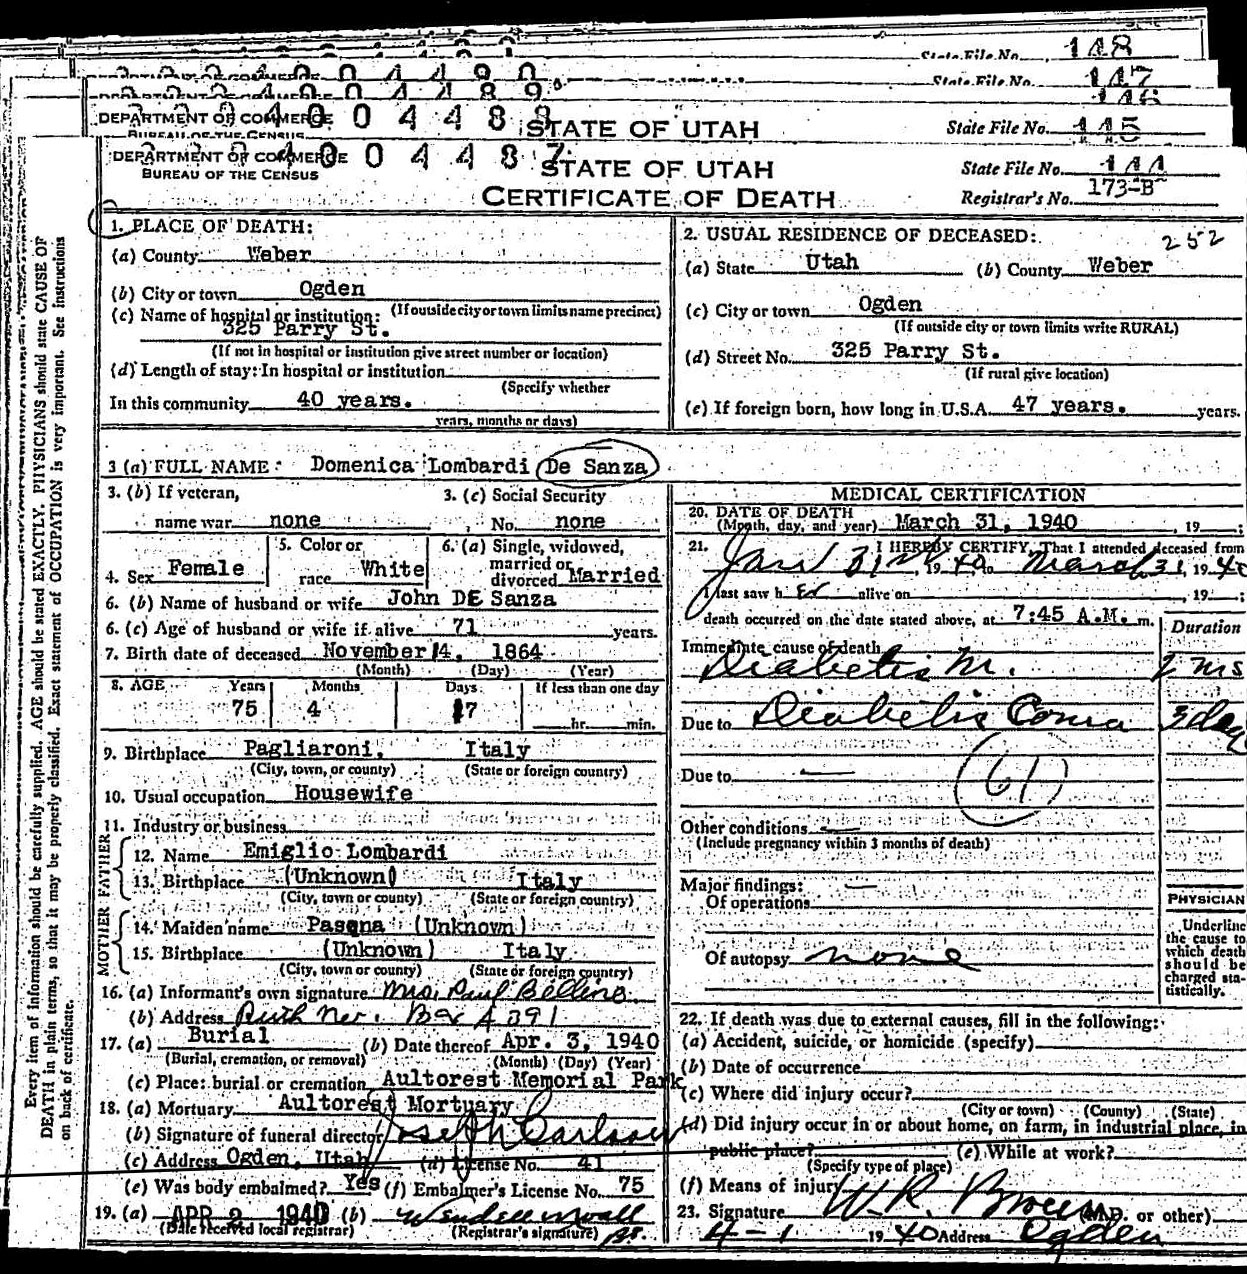 State File No. 148
State File No. 147
146
DEPARTMENT OF COMMERCE
BUREAU OF THE CENSUS
STATE OF UTAH
State File No. 145
DEPARTMENT OF COMMERCE
BUREAU OF THE CENSUS
STATE OF UTAH
CERTIFICATE OF DEATH
State File No. 144
Registrar's No. 173-B
252
Every item of information should be carefully supplied. AGE should be stated EXACTLY. PHYSICIANS should state CAUSE OF
DEATH in plain terms, so that it may be properly classified. Exact statement of OCCUPATION is very important. See instructions
on back of certificate.
1. PLACE OF DEATH:
(a) County Weber
(b) City or town Ogden
(If outside city or town limits name precinct)
(c) Name of hospital or institution:
325 Parry St.
(If not in hospital or institution give street number or location)
(d) Length of stay: In hospital or institution
(Specify whether
In this community 40 years.
years, months or days)
2. USUAL RESIDENCE OF DECEASED:
(a) State Utah (b) County Weber
(c) City or town Ogden
(If outside city or town limits write RURAL)
(d) Street No. 325 Parry St.
(If rural give location)
(e) If foreign born, how long in U.S.A. 47 years. years.
3 (a) FULL NAME: Domenica Lombardi De Sanza
3. (b) If veteran,
name war none
3. (c) Social Security
No. none
4. Sex Female
5. Color or
race White
6. (a) Single, widowed,
married or
divorced Married
6. (b) Name of husband or wife John DE Sanza
6. (c) Age of husband or wife if alive 71 years.
7. Birth date of deceased November 14, 1864
(Month) (Day) (Year)
8. AGE Years Months Days If less than one day
75 4 17 hr. min.
9. Birthplace Pagliaroni, Italy
(City, town, or county) (State or foreign country)
10. Usual occupation Housewife
11. Industry or business
FATHER
12. Name Emiglio Lombardi
13. Birthplace (Unknown) Italy
(City, town or county) (State or foreign country)
MOTHER
14. Maiden name Pasqna (Unknown)
15. Birthplace (Unknown) Italy
(City, town or county) (State or foreign country)
16. (a) Informant's own signature Mrs. Paul Bellino
(b) Address Ruth Nev. Box A 391
17. (a) Burial (b) Date thereof Apr. 3, 1940
(Burial, cremation, or removal) (Month) (Day) (Year)
(c) Place: burial or cremation Aultorest Memorial Park
18. (a) Mortuary Aultorest Mortuary
(b) Signature of funeral director Joseph Carlson
(c) Address Ogden, Utah (d) License No. 41
(e) Was body embalmed? Yes (f) Embalmer's License No. 75
19. (a) APR 2 1940 (b)
(Date received local registrar) (Registrar's signature)
MEDICAL CERTIFICATION
20. DATE OF DEATH
(Month, day, and year) March 31, 1940, 19 ;
21. I HEREBY CERTIFY, That I attended deceased from
Jan 31st 1940 to March 31, 1940
I last saw h er alive on , 19 ;
death occurred on the date stated above, at 7:45 A.M. m.
Duration
Immediate cause of death
Diabetis M. 2 mos
Due to Diabetis Coma 3 days
Due to —
61
Other conditions —
(Include pregnancy within 3 months of death)
Major findings: —
Of operations
Of autopsy none
PHYSICIAN
Underline
the cause to
which death
should be
charged sta-
tistically.
22. If death was due to external causes, fill in the following:
(a) Accident, suicide, or homicide (specify)
(b) Date of occurrence
(c) Where did injury occur?
(City or town) (County) (State)
(d) Did injury occur in or about home, on farm, in industrial place, in
public place? (e) While at work?
(Specify type of place)
(f) Means of injury
23. Signature W. R. Brown (M.D. or other)
4-1 1940 Address Ogden